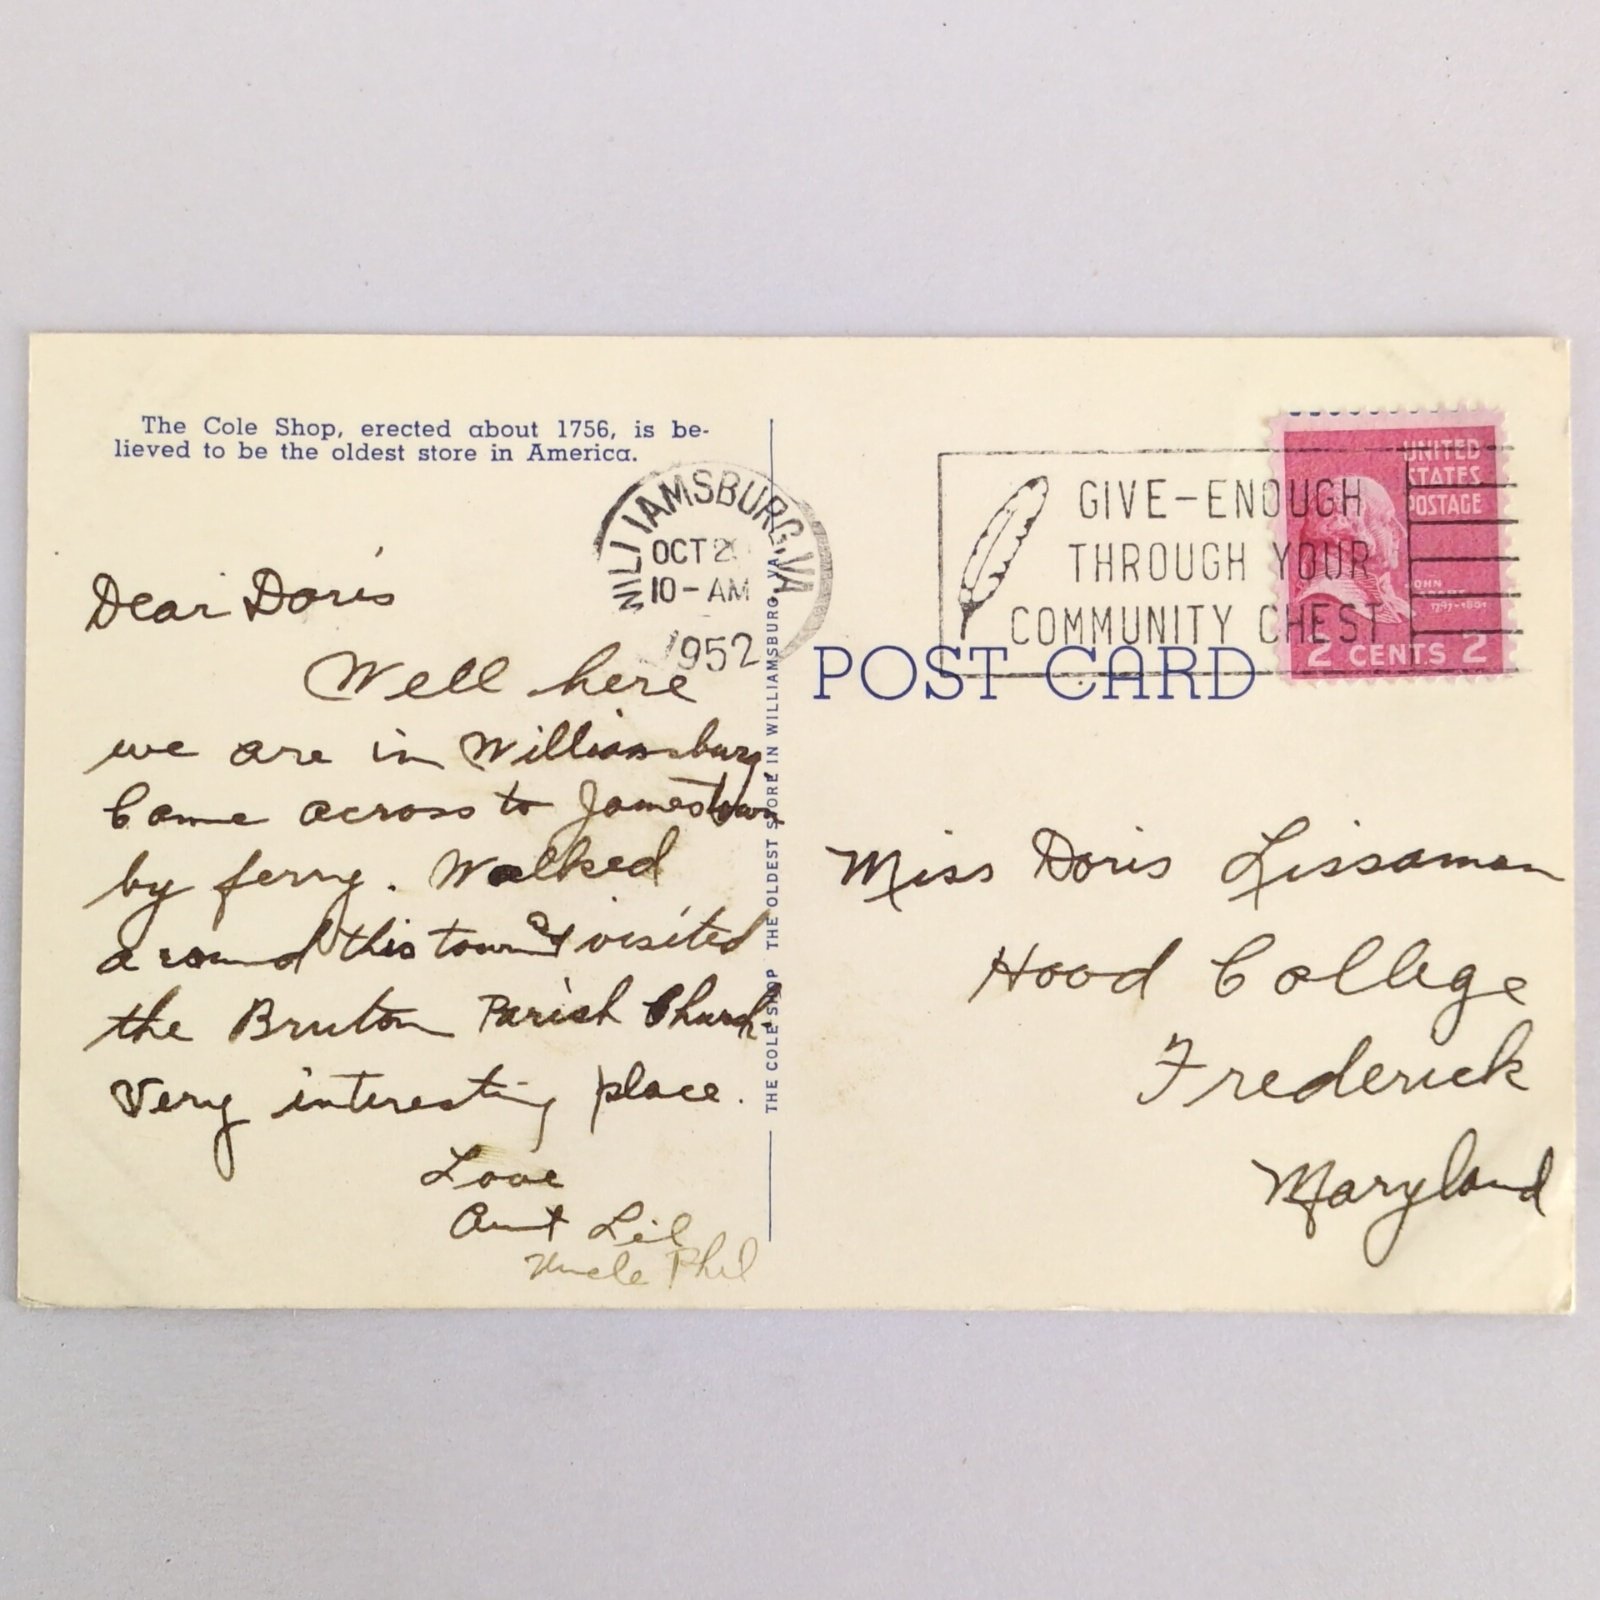 The Cole Shop, erected about 1756, is be-
lieved to be the oldest store in America.
WILLIAMSBURG, VA
OCT
10-AM
1952
GIVE-ENOUGH
THROUGH YOUR
COMMUNITY CHEST
UNITED
STATES
POSTAGE
JOHN
ADAMS
1797-1801
2 CENTS 2
POST CARD
Dear Doris
Well here
we are in Williamsburg.
Came across to Jamestown
by ferry. Walked
around this town & visited
the Bruton Parish Church.
Very interesting place.
Love
Aunt Lil
Uncle Phil
THE COLE SHOP THE OLDEST STORE IN WILLIAMSBURG, VA.
Miss Doris Lissaman
Hood College
Frederick
Maryland